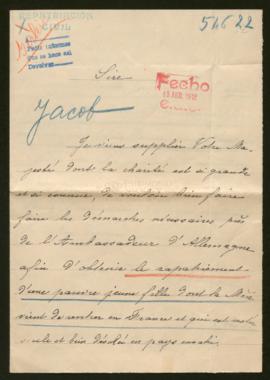 REPATRIACIÓN
CIVIL
54622
Pedir informes
Devolver
Sire
Fecho
Jacob
Je viens supplier Votre Ma-
jesté dont la charité est si grande
et si connue, de vouloir bien faire
faire les démarches nécessaires près
de l'Ambassadeur d'Allemagne
afin d'obtenir le rapatriement
d'une pauvre jeune fille dont la Mère
vient de rentrer en France et qui est restée
seule et bien désolée en pays envahi